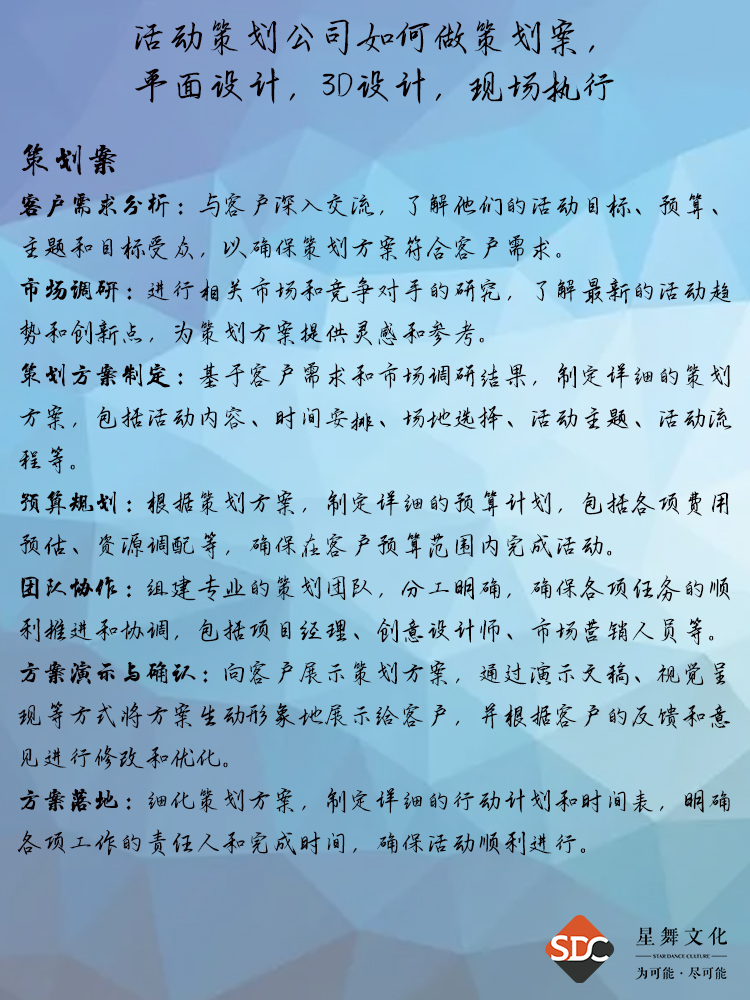 活动策划公司如何做策划案，
平面设计，3D设计，现场执行
策划案
客户需求分析：与客户深入交流，了解他们的活动目标、预算、
主题和目标受众，以确保策划方案符合客户需求。
市场调研：进行相关市场和竞争对手的研究，了解最新的活动趋
势和创新点，为策划方案提供灵感和参考。
策划方案制定：基于客户需求和市场调研结果，制定详细的策划
方案，包括活动内容、时间安排、场地选择、活动主题、活动流
程等。
预算规划：根据策划方案，制定详细的预算计划，包括各项费用
预估、资源调配等，确保在客户预算范围内完成活动。
团队协作：组建专业的策划团队，分工明确，确保各项任务的顺
利推进和协调，包括项目经理、创意设计师、市场营销人员等。
方案演示与确认：向客户展示策划方案，通过演示文稿、视觉呈
现等方式将方案生动形象地展示给客户，并根据客户的反馈和意
见进行修改和优化。
方案落地：细化策划方案，制定详细的行动计划和时间表，明确
各项工作的责任人和完成时间，确保活动顺利进行。
SDC
星舞文化
STAR DANCE CULTURE
为可能·尽可能